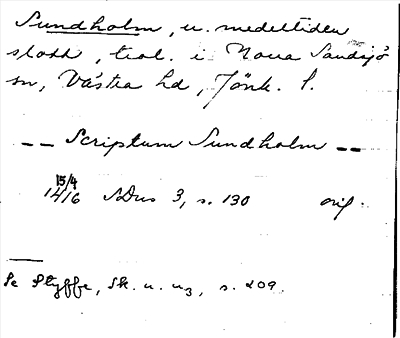 Sundholm, u. medeltiden
slott, trol. i Norra Sandsjö
sn, Västra hd, Jönk. l.
-- Scriptum Sundholm --
15/4
1416 SDns 3, s. 130 orig.
Se Styffe, Sk. u. u3, s. 209.